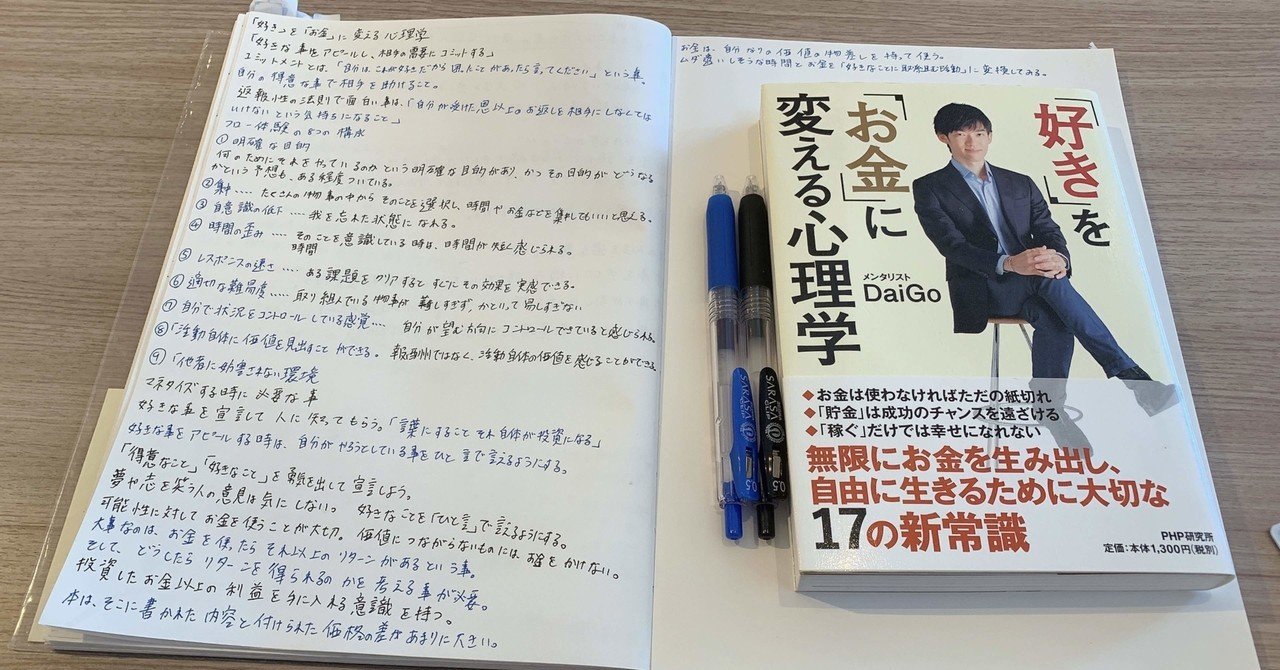 「好き」を「お金」に変える心理学
「好きな事をアピールし、相手の需要にコミットする」
コミットメントとは、「自分は、これが好きだから困ったことがあったら言ってください」という事。
自分の得意な事で相手を助けること。
返報性の法則で面白い事は、「自分が受けた恩以上のお返しを相手にしなくては
いけないという気持ちになること」
フロー体験の8つの構成
①明確な目的
何のためにそれをやっているのかという明確な目的があり、かつその目的がどうなる
かという予想も、ある程度ついている。
②集中……たくさんの物事の中からそのことを選択し、時間やお金などを集中してもいいと思える。
③自意識の低下……我を忘れた状態になれる。
④時間の歪み……そのことを意識している時は、時間が短く感じられる。
時間
⑤レスポンスの速さ……ある課題をクリアするとすぐにその効果を実感できる。
⑥適切な難易度……取り組んでいる物事が難しすぎず、かといって易しすぎない
⑦自分で状況をコントロールしている感覚……自分が望む方向にコントロールできていると感じられる。
⑧「活動自体に価値を見出すことができる。報酬ではなく、活動自体の価値を感じることができる。
⑨「他者に妨害されない環境
マネタイズする時に必要な事
好きな事を宣言して人に知ってもらう。「言葉にすることそれ自体が投資になる」
好きな事をアピールする時は、自分がやろうとしている事をひと言で言えるようにする。
「得意なこと」「好きなこと」を勇気を出して宣言しよう。
夢や志を笑う人の意見は気にしない。好きなことを「ひと言」で言えるようにする。
可能性に対してお金を使うことが大切。価値につながらないものにはお金をかけない。
大事なのは、お金を使ったらそれ以上のリターンがあるという事。
そして、どうしたらリターンを得られるのかを考える事が必要。
投資したお金以上の利益を手に入れる意識を持つ。
本は、そこに書かれた内容と付けられた価格の差があまりに大きい。
お金は、自分なりの価値の物差しを持って使う。
ムダ遣いしそうな時間とお金を「好きなことに取り組む活動」に変換してみる。
「好き」を
「お金」に
変える心理学
メンタリスト
DaiGo
◆お金は使わなければただの紙切れ
◆「貯金」は成功のチャンスを遠ざける
◆「稼ぐ」だけでは幸せになれない
無限にお金を生み出し、
自由に生きるために大切な
17の新常識
PHP研究所
定価:本体1,300円(税別)
SARASA
0.5
SARASA
0.5